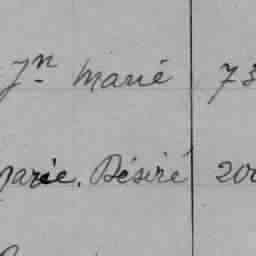 Jn Marié 73
Marie. Désiré 200